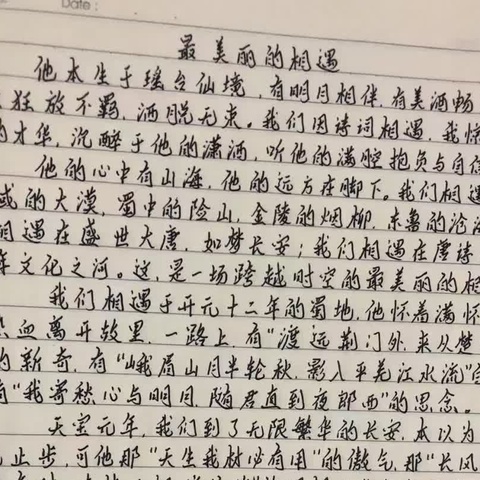 Date:
最美丽的相遇
他本生于瑶台仙境,有明月相伴,有美酒畅
狂放不羁,洒脱无束。我们因诗词相遇,我惊
的才华,沉醉于他的潇洒,听他的满腔抱负与自信
他的心中有山海,他的远方在脚下。我们相遇
的大漠,蜀中的险山,金陵的烟柳,东鲁的沧
相遇在盛世大唐,如梦长安;我们相遇在唐诗
年文化之河。这,是一场跨越时空的最美丽的相
我们相遇于开元十二年的蜀地,他怀着满怀
热血离开故里,一路上,有“渡远荆门外,来从楚
的新奇,有“峨眉山月半轮秋,影入平羌江水流”
有“我寄愁心与明月,随君直到夜郎西”的思念。
天宝元年,我们到了无限繁华的长安,本以为
止步,可他那“天生我材必有用”的傲气,那“长风